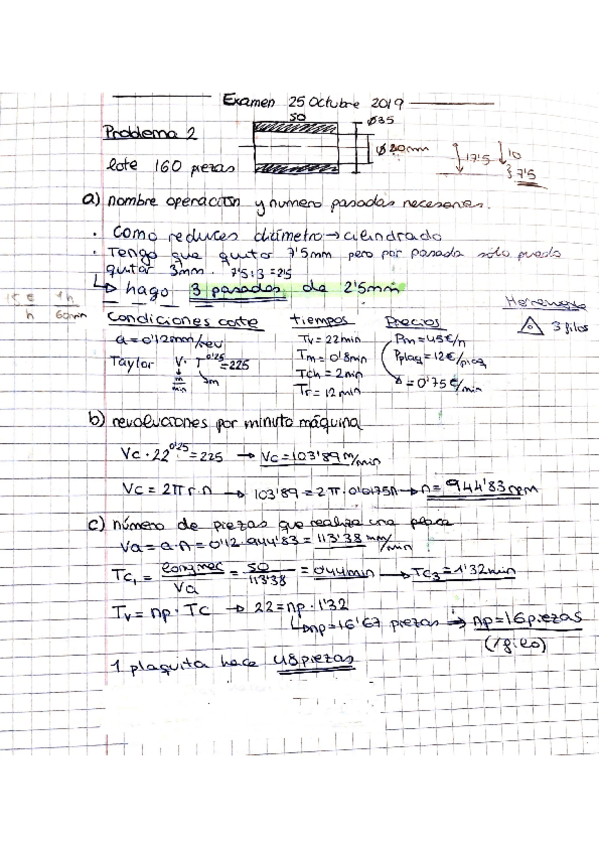 Examen 25 Octubre 2019
Problema 2
50
Ø35
Ø20mm
17'5
10
7'5
lote 160 piezas
a) nombre operación y numero pasadas necesarias.
· Como reduces diámetro → cilindrado
· Tengo que quitar 7'5mm pero por pasada sólo puedo
quitar 3mm. 7'5:3=2'5
↳ hago 3 pasadas de 2'5mm
€ 1h
h 60min
Condiciones corte
tiempos
Precios
Herramienta
a=0'12mm/rev
Tv=22min
Pm=45€/h
Pplaq=12€/plaq
3 filos
Taylor V·T^0'25=225
m/min
m
Tm=0'8min
Tch=2min
Tr=12min
=0'75€/min
b) revoluciones por minuto máquina
Vc·22^0'25=225 → Vc=103'89 m/min
Vc=2πr·n → 103'89=2π·0'0175n → n=944'83rpm
c) número de piezas que realiza una placa
Va=a·n=0'12·944'83=113'38 mm/min
Tc1=long mec/Va=50/113'38=0'44min → Tc3=1'32min
Tv=np·Tc → 22=np·1'32
↳ np=16'67 piezas → np=16piezas
(1 filo)
1 plaquita hace 48piezas